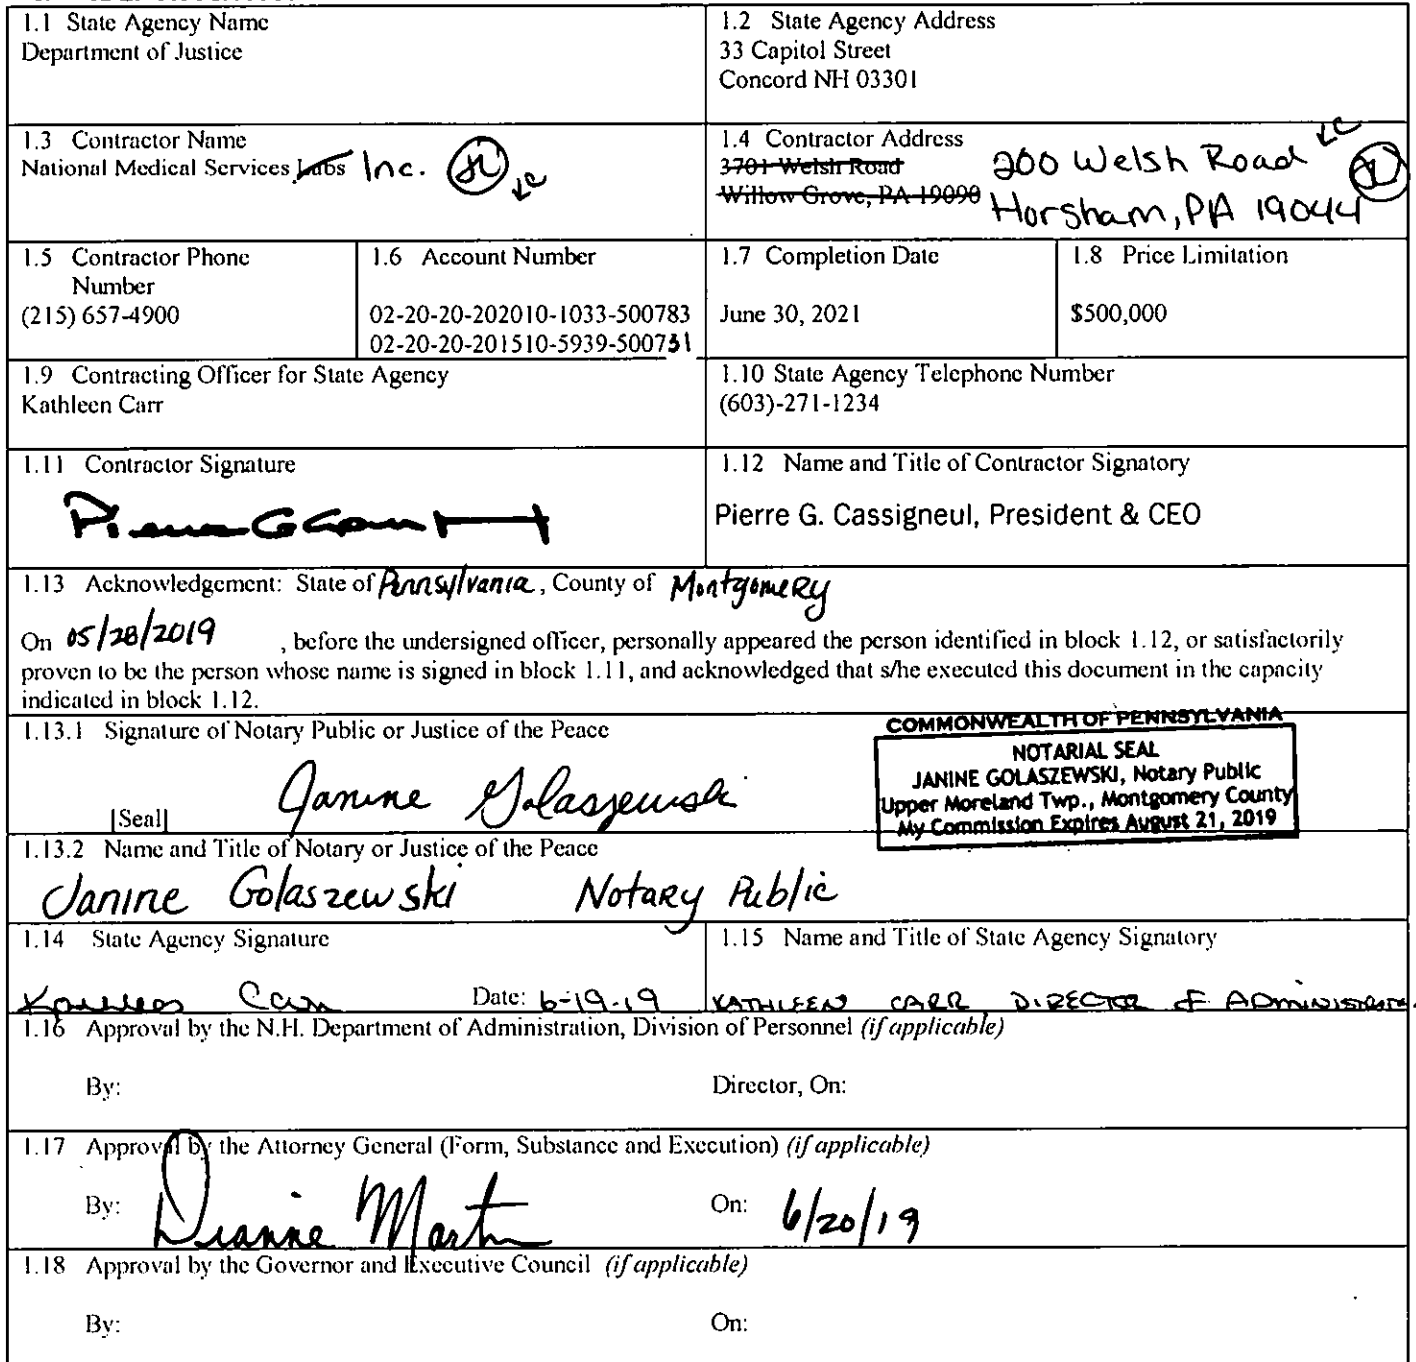 1.1 State Agency Name
Department of Justice
1.2 State Agency Address
33 Capitol Street
Concord NH 03301
1.3 Contractor Name
National Medical Services Labs Inc.
1.4 Contractor Address
3701 Welsh Road
Willow Grove, PA 19090
200 Welsh Road
Horsham, PA 19044
1.5 Contractor Phone
Number
(215) 657-4900
1.6 Account Number
02-20-20-202010-1033-500783
02-20-20-201510-5939-500731
1.7 Completion Date
June 30, 2021
1.8 Price Limitation
$500,000
1.9 Contracting Officer for State Agency
Kathleen Carr
1.10 State Agency Telephone Number
(603)-271-1234
1.11 Contractor Signature
1.12 Name and Title of Contractor Signatory
Pierre G. Cassigneul, President & CEO
1.13 Acknowledgement: State of Pennsylvania, County of Montgomery
On 05/28/2019 , before the undersigned officer, personally appeared the person identified in block 1.12, or satisfactorily
proven to be the person whose name is signed in block 1.11, and acknowledged that s/he executed this document in the capacity
indicated in block 1.12.
1.13.1 Signature of Notary Public or Justice of the Peace
Janine Golaszewski
[Seal]
COMMONWEALTH OF PENNSYLVANIA
NOTARIAL SEAL
JANINE GOLASZEWSKI, Notary Public
Upper Moreland Twp., Montgomery County
My Commission Expires August 21, 2019
1.13.2 Name and Title of Notary or Justice of the Peace
Janine Golaszewski Notary Public
1.14 State Agency Signature
Kathleen Carr Date: 6-19-19
1.15 Name and Title of State Agency Signatory
KATHLEEN CARR DIRECTOR OF
1.16 Approval by the N.H. Department of Administration, Division of Personnel (if applicable)
By: Director, On:
1.17 Approval by the Attorney General (Form, Substance and Execution) (if applicable)
By: Dianne Martin On: 6/20/19
1.18 Approval by the Governor and Executive Council (if applicable)
By: On: